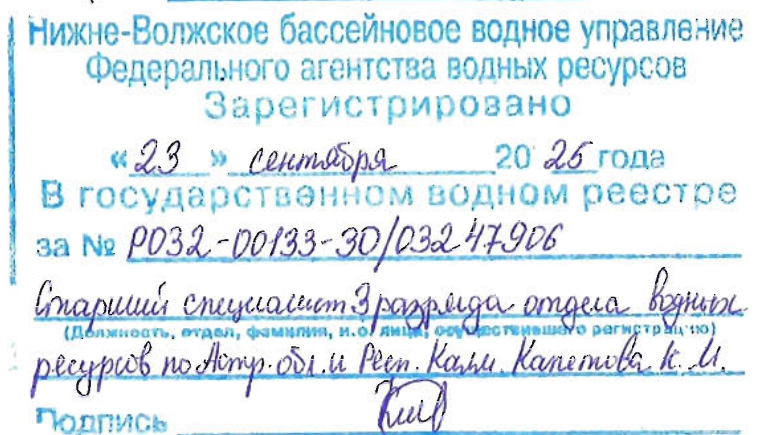 Нижне-Волжское бассейновое водное управление
Федерального агентства водных ресурсов
Зарегистрировано
«23» сентября 2025 года
В государственном водном реестре
за № Р032-00133-30/03247906
Старший специалист 3 разряда отдела водных
(Должность, отдел, фамилия, и.о. лица, осуществившего регистрацию)
ресурсов по Астр. обл. и Респ. Калм. Капетова К. М.
Подпись